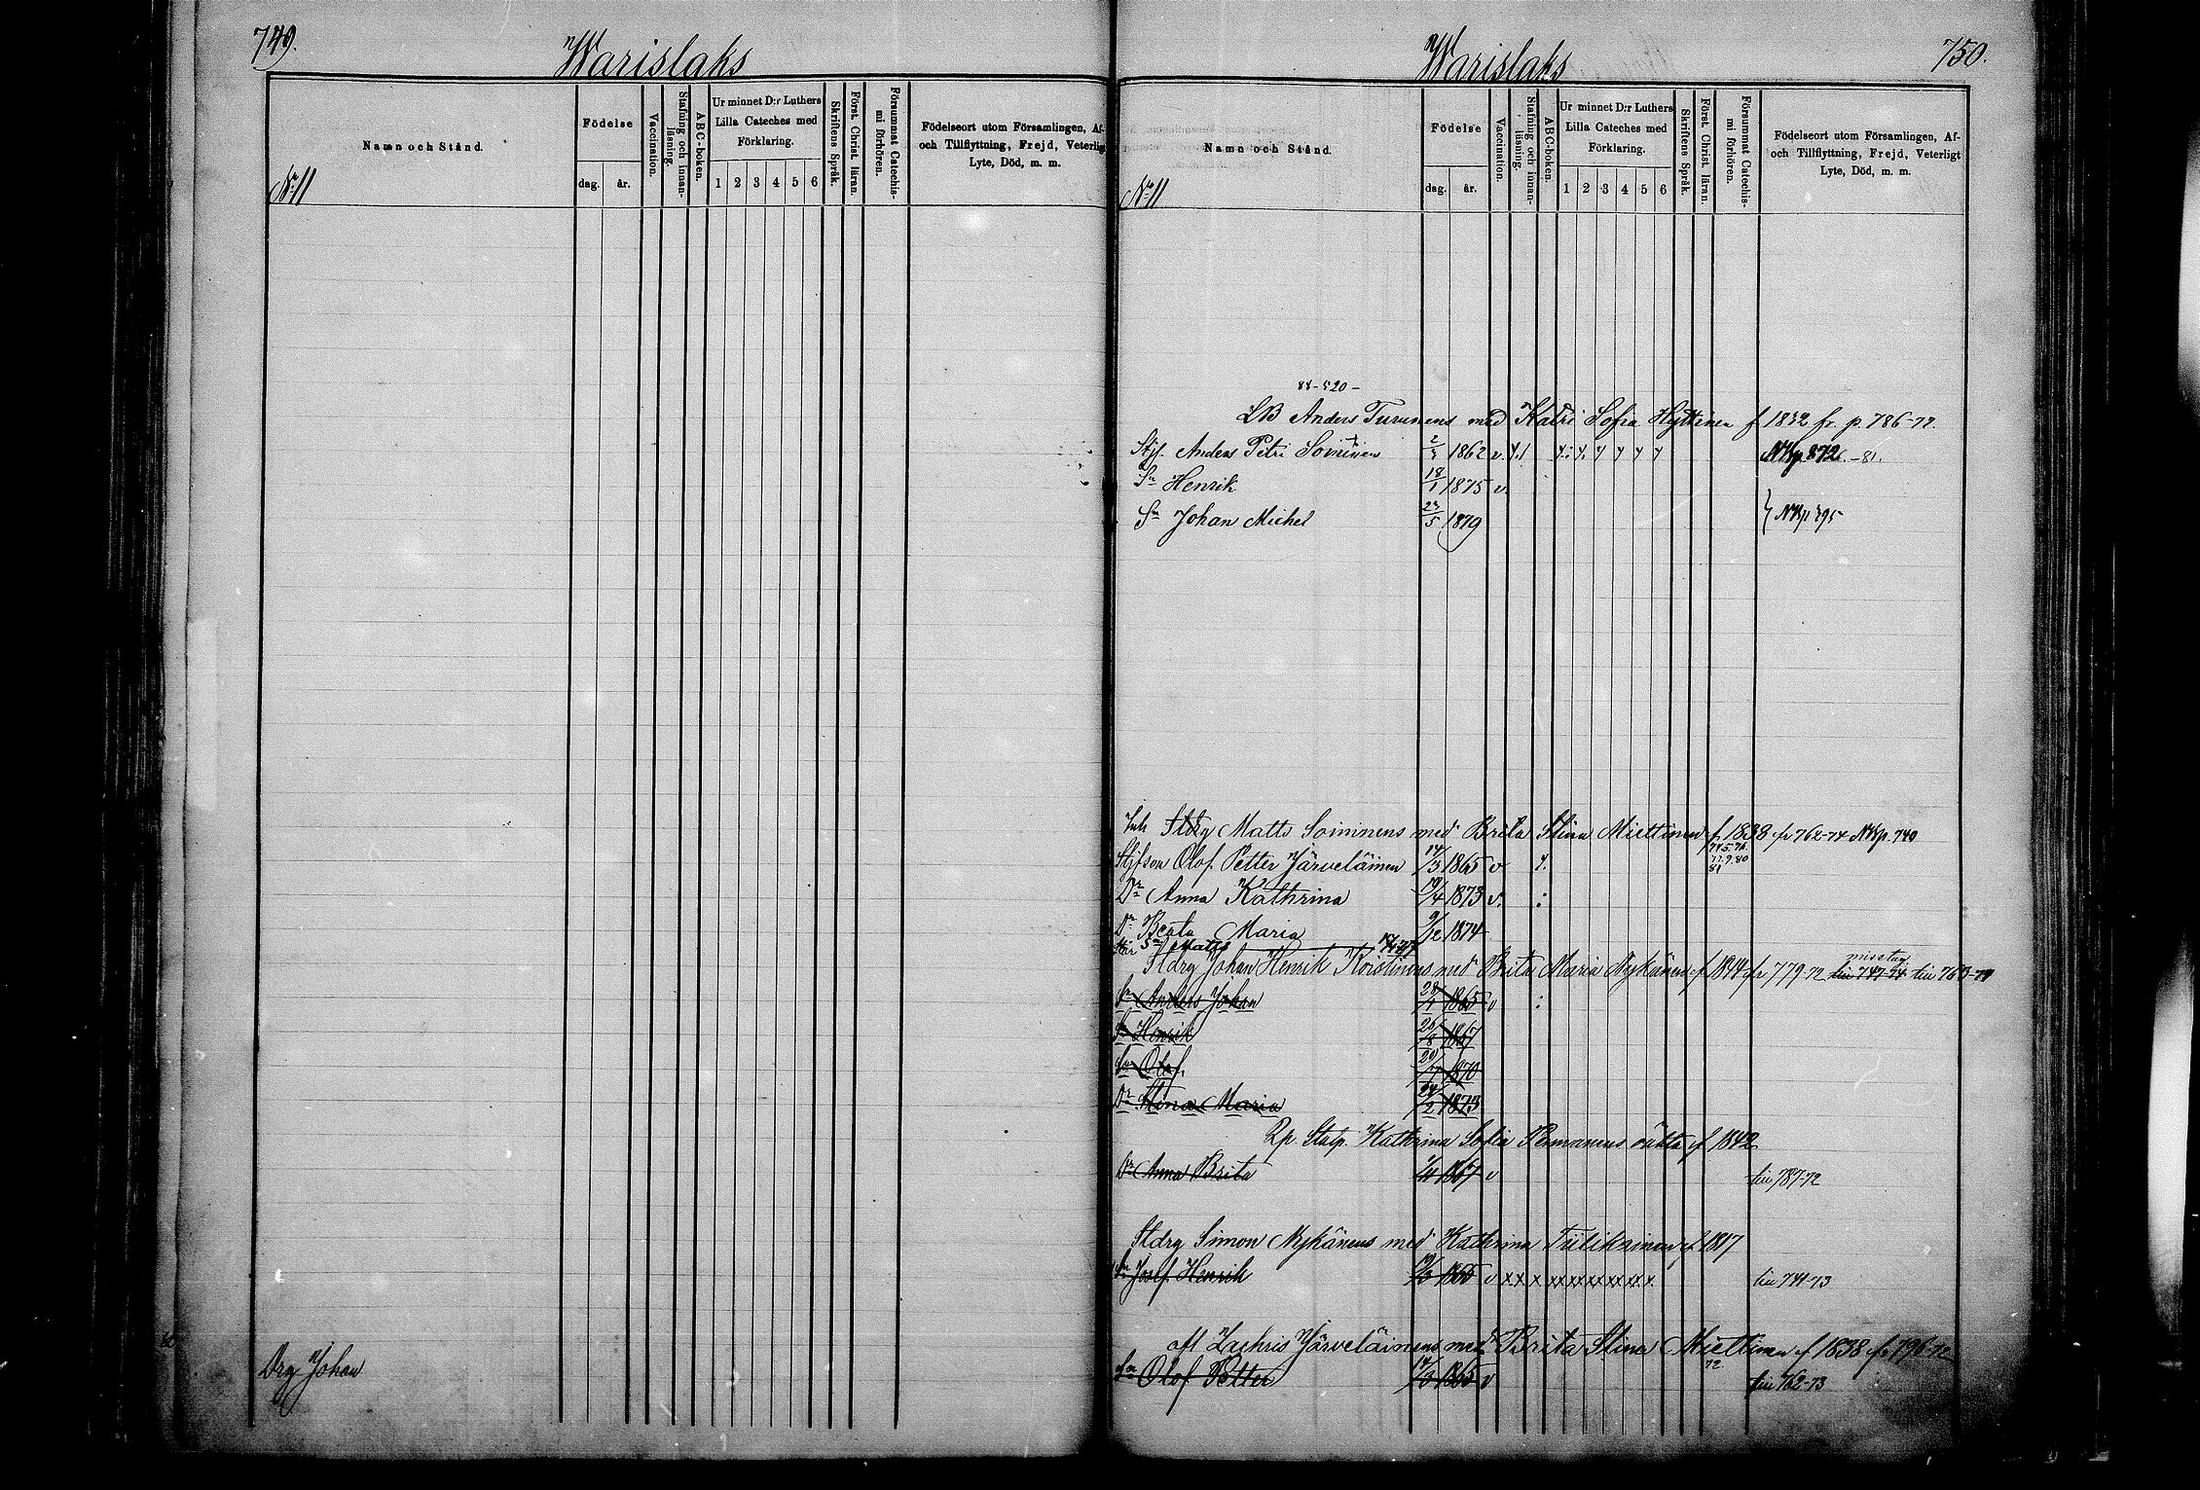 749.
Warislaks
Namn och Stånd.
Födelse
dag. år.
Vaccination.
Stafning och innan-läsning.
ABC-boken.
Ur minnet D:r Luthers Lilla Cateches med Förklaring.
1 2 3 4 5 6
Skriftens Språk.
Först. Christ. läran.
Försummat Catechis-mi förhören.
Födelseort utom Församlingen, Af-
och Tillflyttning, Frejd, Veterligt
Lyte, Död, m. m.
No 11
Drg Johan
Warislaks
750.
Namn och Stånd.
Födelse
dag. år.
Vaccination.
Stafning och innan-läsning.
ABC-boken.
Ur minnet D:r Luthers Lilla Cateches med Förklaring.
1 2 3 4 5 6
Skriftens Språk.
Först. Christ. läran.
Försummat Catechis-mi förhören.
Födelseort utom Församlingen, Af-
och Tillflyttning, Frejd, Veterligt
Lyte, Död, m. m.
No 11
88-520-
LB Anders Turunens med Katri Sofia Hyttinen f 1832 fr. p. 786-72.
Stjf. Anders Petri Soininen 1862 v. -81.
Sn Henrik 18/1 1875 v.
Sn Johan Michel 23/5 1879
Inh Stdrg Matts Soininens med Brita Stina Miettinen f. 1838 fr 762-74 NKp. 740
Stjfson Olof Petter Järveläinen 14/3 1865 v
74.5.76. 77.9.80 81
Dr Anna Kathrina 19/4 1873 v. :
Dr Beata Maria 9/12 1874
Sn Matts
Stdrg Johan Henrik Koistinens med Brita Maria Nykänen f 1844 fr 779-72 misstag liu 747-74 liu 763-74
Sn Anders Johan 1865 v :
Sn Henrik 1867
Sn Olof. 1870
Dr Stina Maria 24/2 1873
Kathrina Sofia Pennanens oäkta f 1842
Dr Anna Brita 1867 v liu 787-72
Stdrg Simon Nykänens med Kathrina Tiilikainen f 1817
Sn Josef Henrik v x x x x x x x x x x liu 741-73
afl Zachris Järveläinens med Brita Stina Miettinen f 1838 fr 796-72
Sn Olof Petter 14/3 1865 v 72 liu 762-73